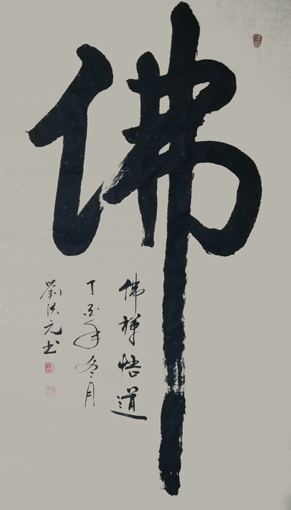 佛
佛禅悟道
丁亥年冬月
劉洪元书